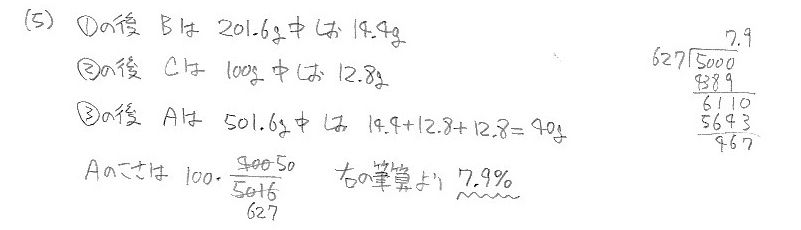 (5) ①の後 Bは 201.6g中しお 14.4g
②の後 Cは 100g中しお 12.8g
③の後 Aは 501.6g中しお 14.4+12.8+12.8=40g
Aのこさは 100・400 50/5016 627 右の筆算より 7.9%
7.9
627)5000
4389
6110
5643
467